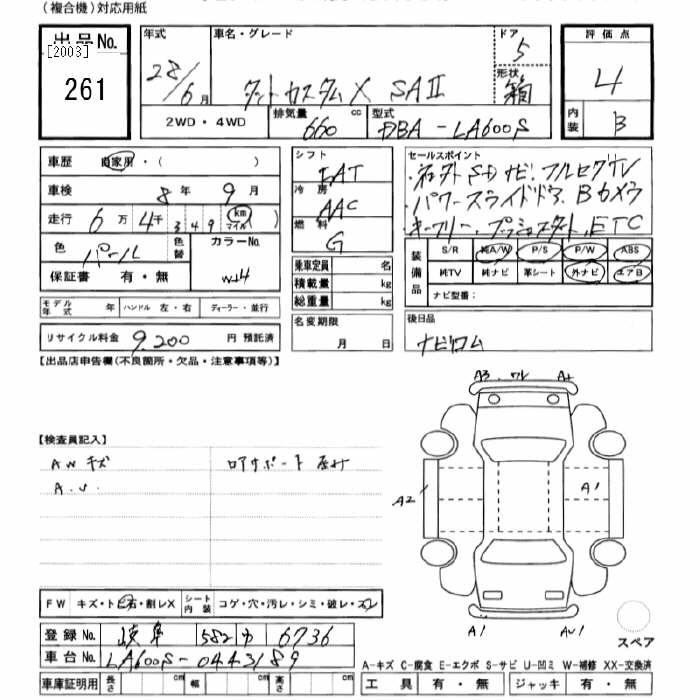 (複合機)対応用紙
出品No. [2003] 261
年式 28/6月
車名・グレード タントカスタムX SAⅡ
ドア 5
形状 箱
評価点 4
内装 B
2WD・4WD 排気量 660 cc 型式 DBA-LA600S
車歴 自家用・( )
車検 8年 9月
走行 6万 4千 349 km マイル
色 パール 色替 カラーNo. W24
保証書 有・無
モデル年式 年 ハンドル 左・右 ディーラー・並行
リサイクル料金 9,200 円 預託済
シフト FAT
冷房 AAC
燃料 G
乗車定員 名
積載量 kg
総重量 kg
名変期限 月 日
セールスポイント
・社外SDナビ・フルセグTV
・パワースライドドア、Bカメラ
・キーフリー、プッシュスタート、ETC
装備品 S/R 純A/W P/S P/W ABS
純TV 純ナビ 革シート 外ナビ エアB
ナビ型番:
後日品
ナビロム
【出品店申告欄(不良箇所・欠品・注意事項等)】
【検査員記入】
AWキズ ロアサポート
A.U.
A3 ワレ A2 A1 A1 AU1
FW キズ・トビ石・割レX シート内装 コゲ・穴・汚レ・シミ・破レ・スレ
登録No. 岐阜 582 か 6736
車台No. LA600S-0443189
車庫証明用 長さ cm 幅 cm 高さ cm
スペア
A-キズ C-腐食 E-エクボ S-サビ U-凹ミ W-補修 XX-交換済
工具 有・無 ジャッキ 有・無